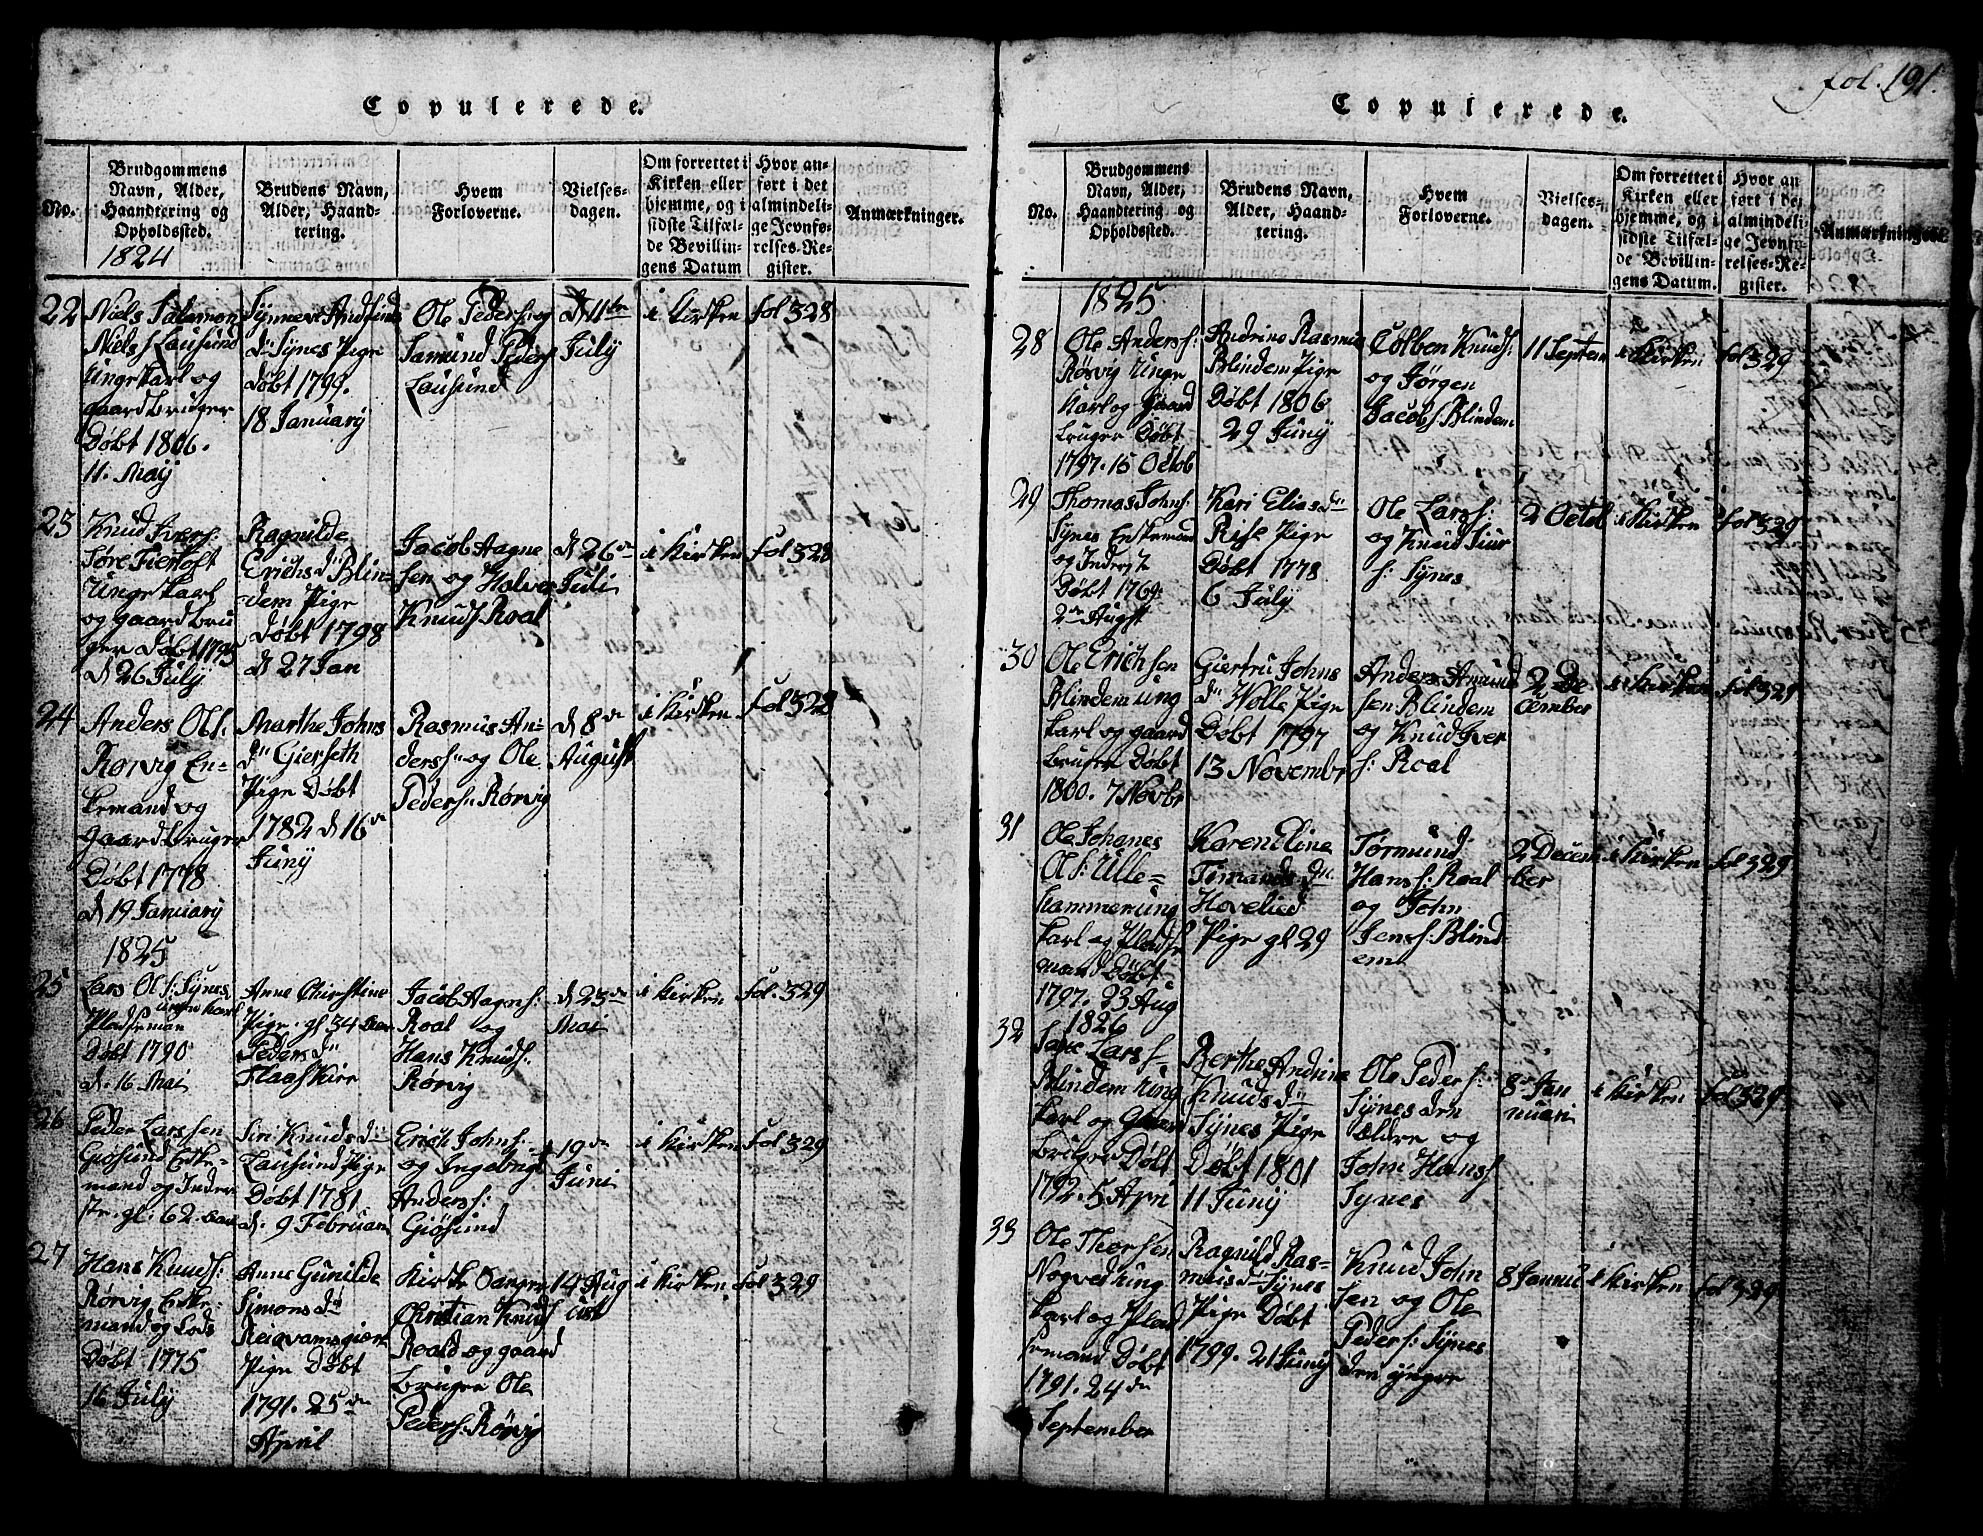 Copulerede.
No.
Brudgommens
Navn, Alder,
Haandtering og
Opholdssted.
1824
Brudens Navn,
Alder, Haand-
tering.
Hvem
Forloverne.
Vielses-
dagen.
Om forrettet i
Kirken eller
hjemme, og i
sidste Tilfæl-
de Bevillin-
gens Datum
Hvor an-
ført i det
almindeli-
ge Jevnfø-
relses-Re-
gister.
Anmærkninger.
22
Niels Salamon
Niels f Lausund
Unge karl og
gaard bruger
Døbt 1806.
11. Maÿ
Synneve Andfinds
dr Synes Pige
døbt 1799.
18 Januarÿ
Ole Peders: og
Samund Peders
Lausund
d 11te
Julÿ
i Kirken
fol 328
23
Knud Ivers:
Søre Fiertoft
Unge karl
og gaard bru
ger døbt 1795
d 26 Julÿ
Ragnilde
Erichs dr Blin-
dem Pige
døbt 1798
d 27 Jan
Jacob Aagne
sen og Halver
Knuds Roal
d 26de
Juli
i Kirken
fol 328
24
Anders Ols.
Rørvig En-
kemand og
gaard bruger
Døbt 1778
d 19 Januarÿ
Marthe Johns
dr Gierseth
Pige Døbt
1782 d 16de
Junÿ
Rasmus An-
derss: og Ole
Peders: Rørvig
d 8de
August
i Kirken
fol 328
1825
25
Lars Ols: Synes
ungekarl
Pladseman
Døbt 1790
d. 16 Mai
Anne Chirstine
Pige. gl 34 Aar
Peders dr
Flaaskier
Jacob Aagns:
Roal og
Hans Knuds:
Rørvig
d 23de
Mai
i Kirken
fol. 329
26
Peder Larssen
Giøsund Enke-
mand og Inder
str. gl: 62. Aar
Siri Knuds dr
Lausund Pige
Døbt 1781
d. 9 Februari
Erich Johns:
og Ingebrigt
Anders:
Giøsund
19de
Juni
i Kirken
fol 329
27
Hans Knuds:
Rørvig Enke-
mand og Lods
Døbt 1775
16 Julÿ
Anne Gunilde
Simons dr
Reiqvamsgiære
Pige Døbt
1791. 25de
April
Kirke Sanger
Christian Knuds
Roald og gaard
bruger Ole
Peders: Rørvig
14 Aug
ust
i Kirken
fol 329
fol. 191.
Copulerede.
No.
Brudgommens
Navn, Alder,
Haandtering og
Opholdssted.
Brudens Navn,
Alder, Haand-
tering.
Hvem
Forloverne.
Vielses-
dagen.
Om forrettet i
Kirken eller
hjemme, og i
sidste Tilfæl-
de Bevillin-
gens Datum.
Hvor an
ført i det
almindeli-
ge Jevnfø-
relses-Re-
gister.
Anmærkninger.
1825.
28
Ole Anders:
Rørvig Unge
karl og Gaard
bruger Døbt
1797. 15 Octob
Andrine Rasmus
Blindem Pige
Døbt 1806
29 Junÿ
Colben Knuds:
og Jørgen
Jacobs: Blindem
11 Septem
i Kirken
fol 329
29
Thomas Johns:
Synes Enkemand
og Inderst
Døbt 1769.
2de August
Kari Elias dr
Rise Pige
Døbt 1778
6 Julÿ
Ole Lars:
og Knud Siur
s: Synes
2 Octob
i Kirken
fol 329
30
Ole Erichsen
Blindem ung
karl og gaard
bruger Døbt
1800. 7 Novbr
Giertru Johns
dr Wolle Pige
Døbt 1797
13 Novembr
Anders Amund
sen Blindem
og Knud Iver
s: Roal
2 De
cember
i Kirken
fol 329
31
Ole Johanes
Ols: Ulle-
hammer ung
karl og Pladse
mand Døbt
1797. 23 Aug
Karen Eline
Tomands dr
Hovelied
Pige gl 29
Tormund
Hans s: Roal
og John
Jens s: Blind
em
2 Decem
ber
i Kirken
fol 329
1826
32
Lars s
Blindem Ung
karl og Gaard
bruger Døbt
1792. 5 April
Berthe Andrine
Knuds dr
Synes Pige
Døbt 1801
11 Junÿ
Ole Peders:
Synes den
ældre og
John Hans s
Synes
8de Jan
nuari
i Kirken
fol 329
33
Ole Thorsen
Nogved Ung
karl og Plad
semand Døbt
1791. 24de
September
Ragnild Ras-
mus dr Synes
Pige Døbt
1799. 21 Junÿ
Knud John
sen og Ole
Peders: Synes
den ÿngre
8 Janua
i Kirken
fol 329